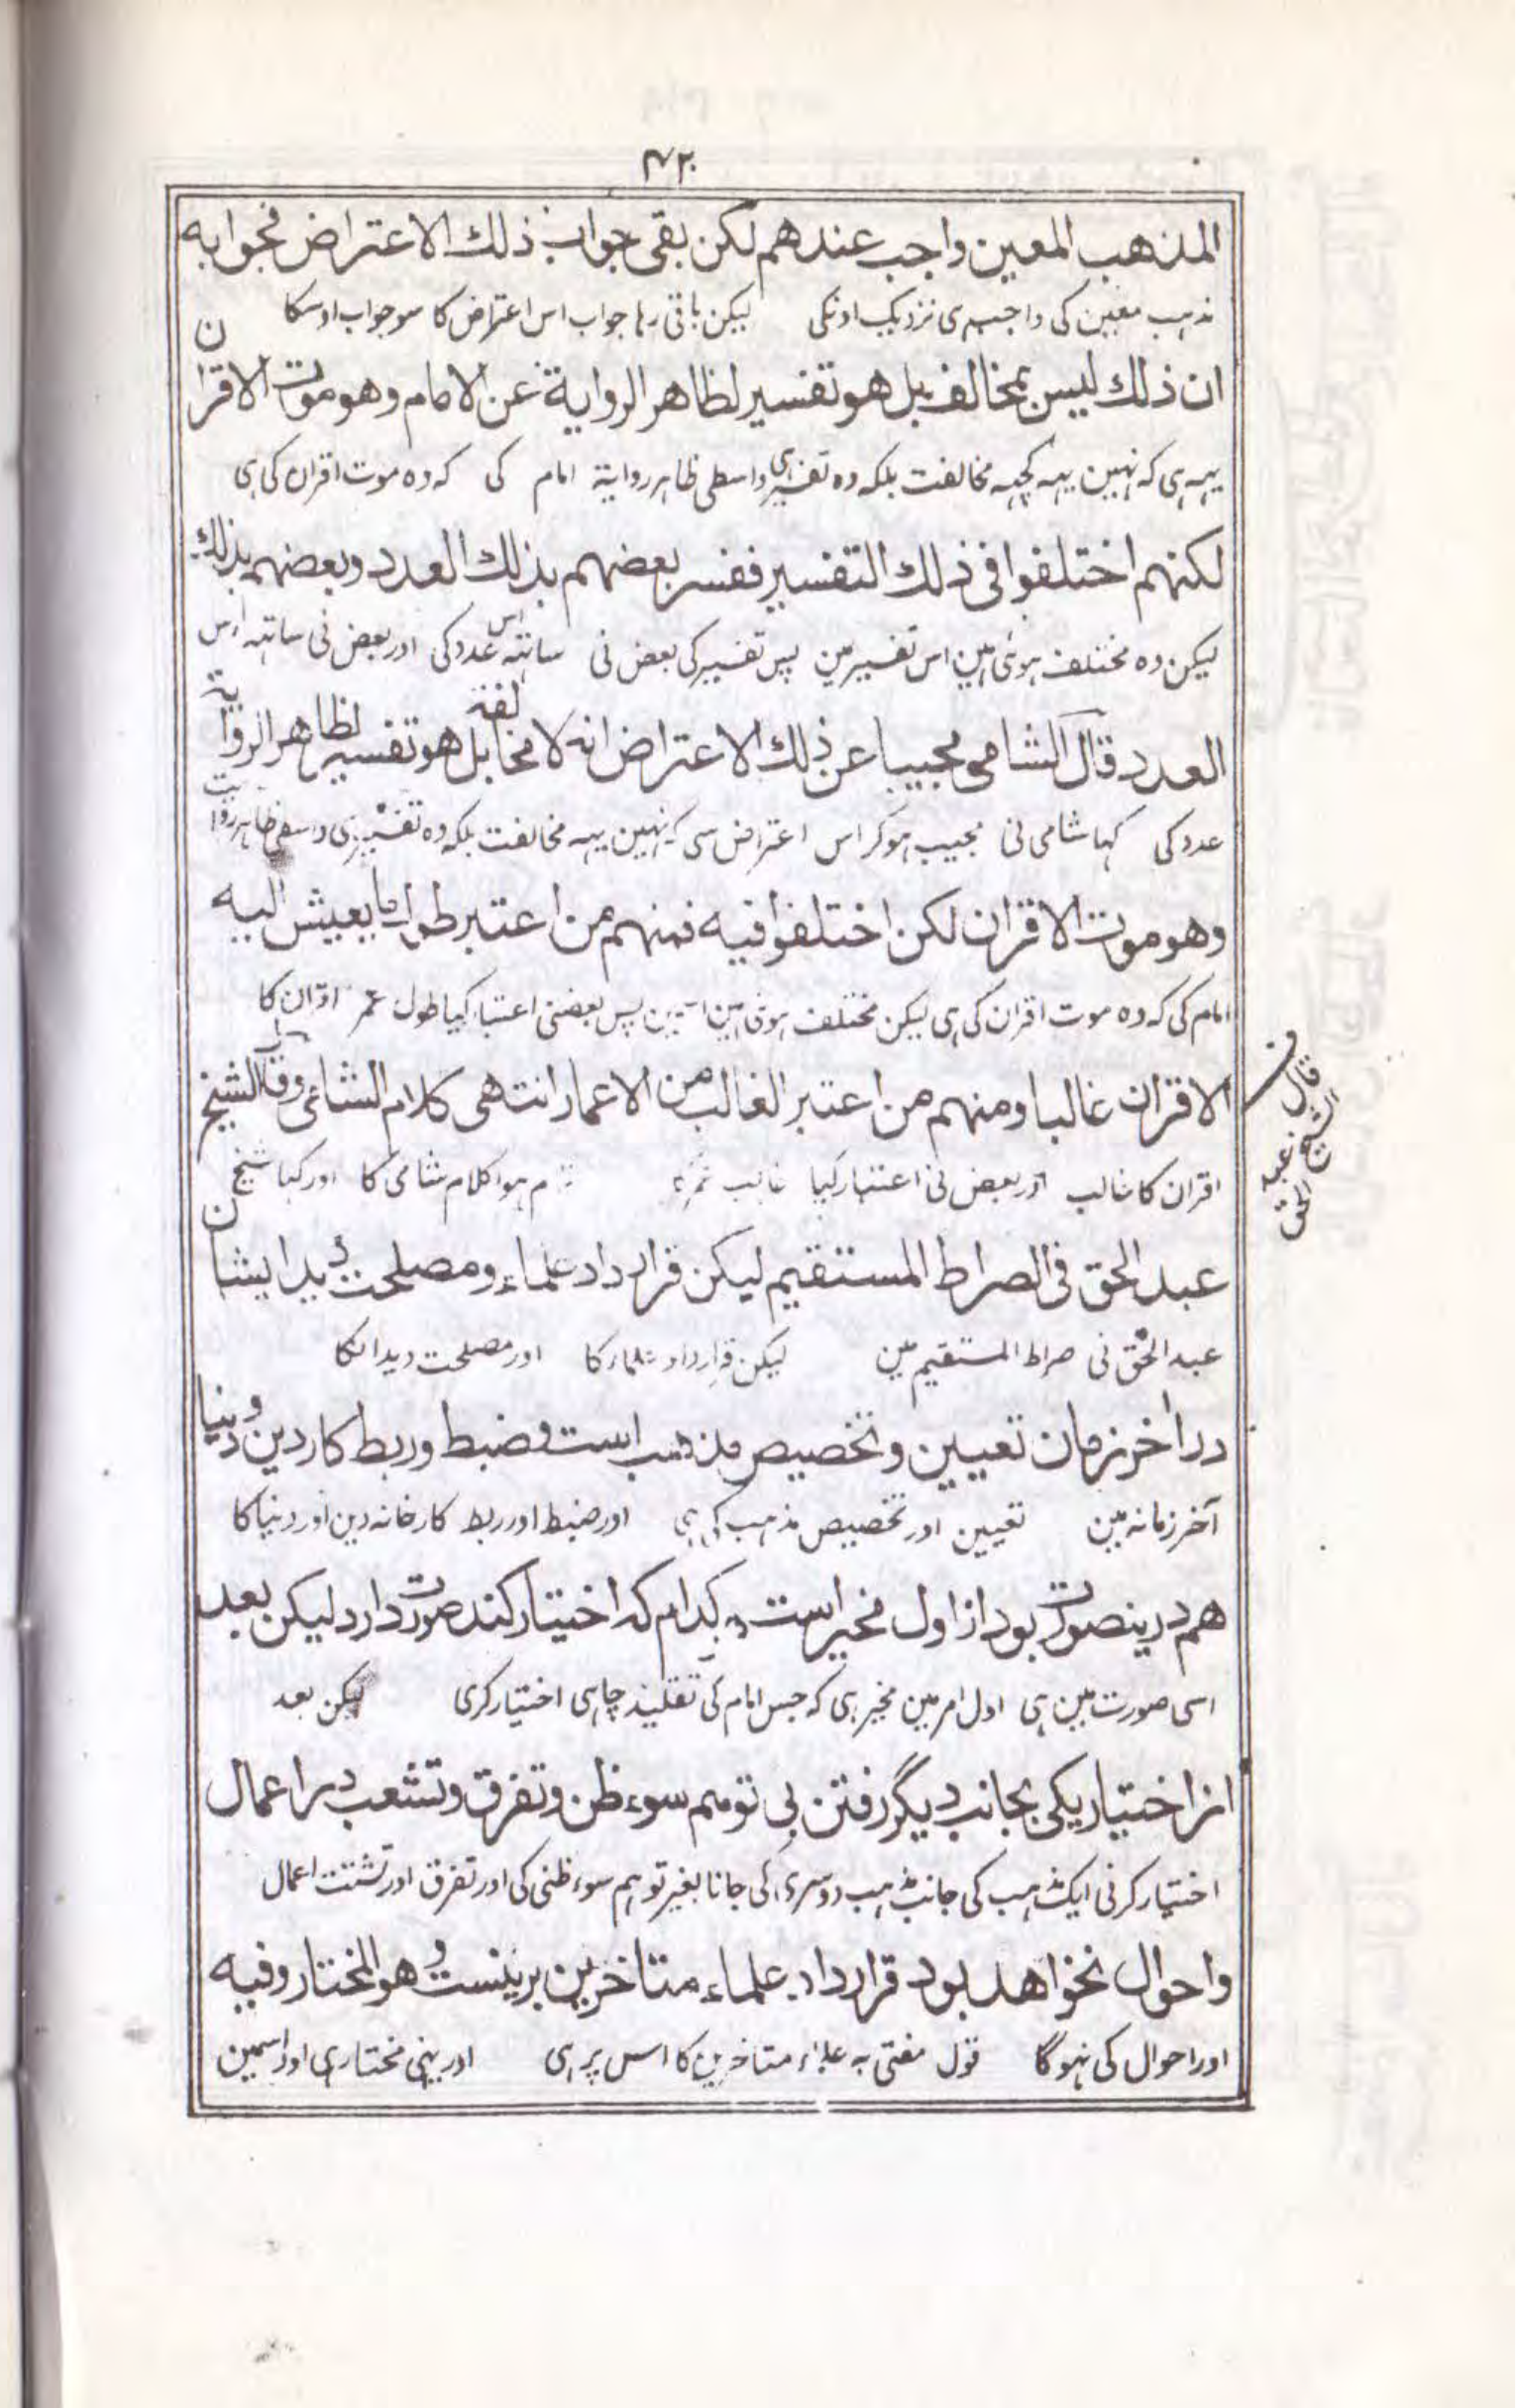 ۴۲۰
المذهب المعين واجب عندهم لكن بقى جواب ذلك الاعتراض فجوابه
مذہب معین کی واجب ہی نزدیک اونکی لیکن باقی رہا جواب اس اعتراض کا سو جواب اوسکا
ان ذلك ليس بمخالف بل هو تفسير لظاهر الرواية عن الامام وهو موت الاقران
یہہ ہی کہ نہین یہہ کچہہ مخالفت بلکہ وہ تفسیر ہی واسطی ظاہر روایة امام کی کہ وہ موت اقران کی ہی
لكنهم اختلفوا فى ذلك التفسير ففسر بعضهم بذلك العدد وبعضهم بذلك
لیکن وہ مختلف ہوئی ہین اس تفسیر مین پس تفسیر کی بعض نی ساتہہ اس عدد کی اور بعض نی ساتہہ اوس
العدد قال الشامى مجيبا عن ذلك الاعتراض انه لا مخالفة بل هو تفسير لظاهر الرواية
عدد کی کہا شامی نی مجیب ہوکر اس اعتراض سی کہ نہین یہہ مخالفت بلکہ وہ تفسیر ہی واسطی ظاہر روایت
وهو موت الاقران لكن اختلفوا فيه فمنهم من اعتبر طول ما يعيش اليه
امام کی کہ وہ موت اقران کی ہی لیکن مختلف ہوئی ہین اسمین پس بعضنی اعتبار کیا طول عمر اقران کا
الاقران غالبا ومنهم من اعتبر الغالب من الاعمار انتهى كلام الشامى وقال الشيخ
اقران کا غالب اور بعض نی اعتبار کیا غالب عمر تمام ہوا کلام شامی کا اور کہا شیخ
قال الشيخ عبد الحق
عبد الحق فى الصراط المستقيم ليكن قرار داد علماء ومصلحت ديد ايشان
عبد الحق نی صراط المستقیم مین لیکن قرارداد علماء کا اور مصلحت دید انکا
در آخر زمان تعيين وتخصيص مذهب است وضبط وربط كار دين ودنيا
آخر زمانہ مین تعیین اور تخصیص مذہب کی ہی اور ضبط اور ربط کارخانہ دین اور دنیا کا
هم درينصورت بود از اول مخير است كدام كه اختيار كند صورت دارد ليكن بعد
اسی صورت مین ہی اول امر مین مخیر ہی کہ جس امام کی تقلید چاہی اختیار کری لیکن بعد
از اختيار يكى بجانب ديگر رفتن بى توهم سوء ظن وتفرق وتشعب در اعمال
اختیار کرنی ایک مذہب کی جانب مذہب دوسری کی جانا بغیر توہم سوء ظنی کی اور تفرق اور تشتت اعمال
واحوال نخواهد بود قرار داد علماء متاخرين برينست وهو المختار وفيه
اور احوال کی نہوگا قول مفتی بہ علماء متاخرین کا اس پر ہی اور یہی مختار ہی اور اسمین